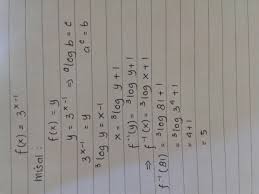 f(x) = 3^(x-1)
misal :
f(x) = y
y = 3^(x-1) ⇒ ᵃlog b = c
3^(x-1) = y    a^c = b
³log y = x-1
x = ³log y + 1
f⁻¹(y) = ³log y + 1
⇒ f⁻¹(x) = ³log x + 1
f⁻¹(81) = ³log 81 + 1
= ³log 3⁴ + 1
= 4 + 1
= 5